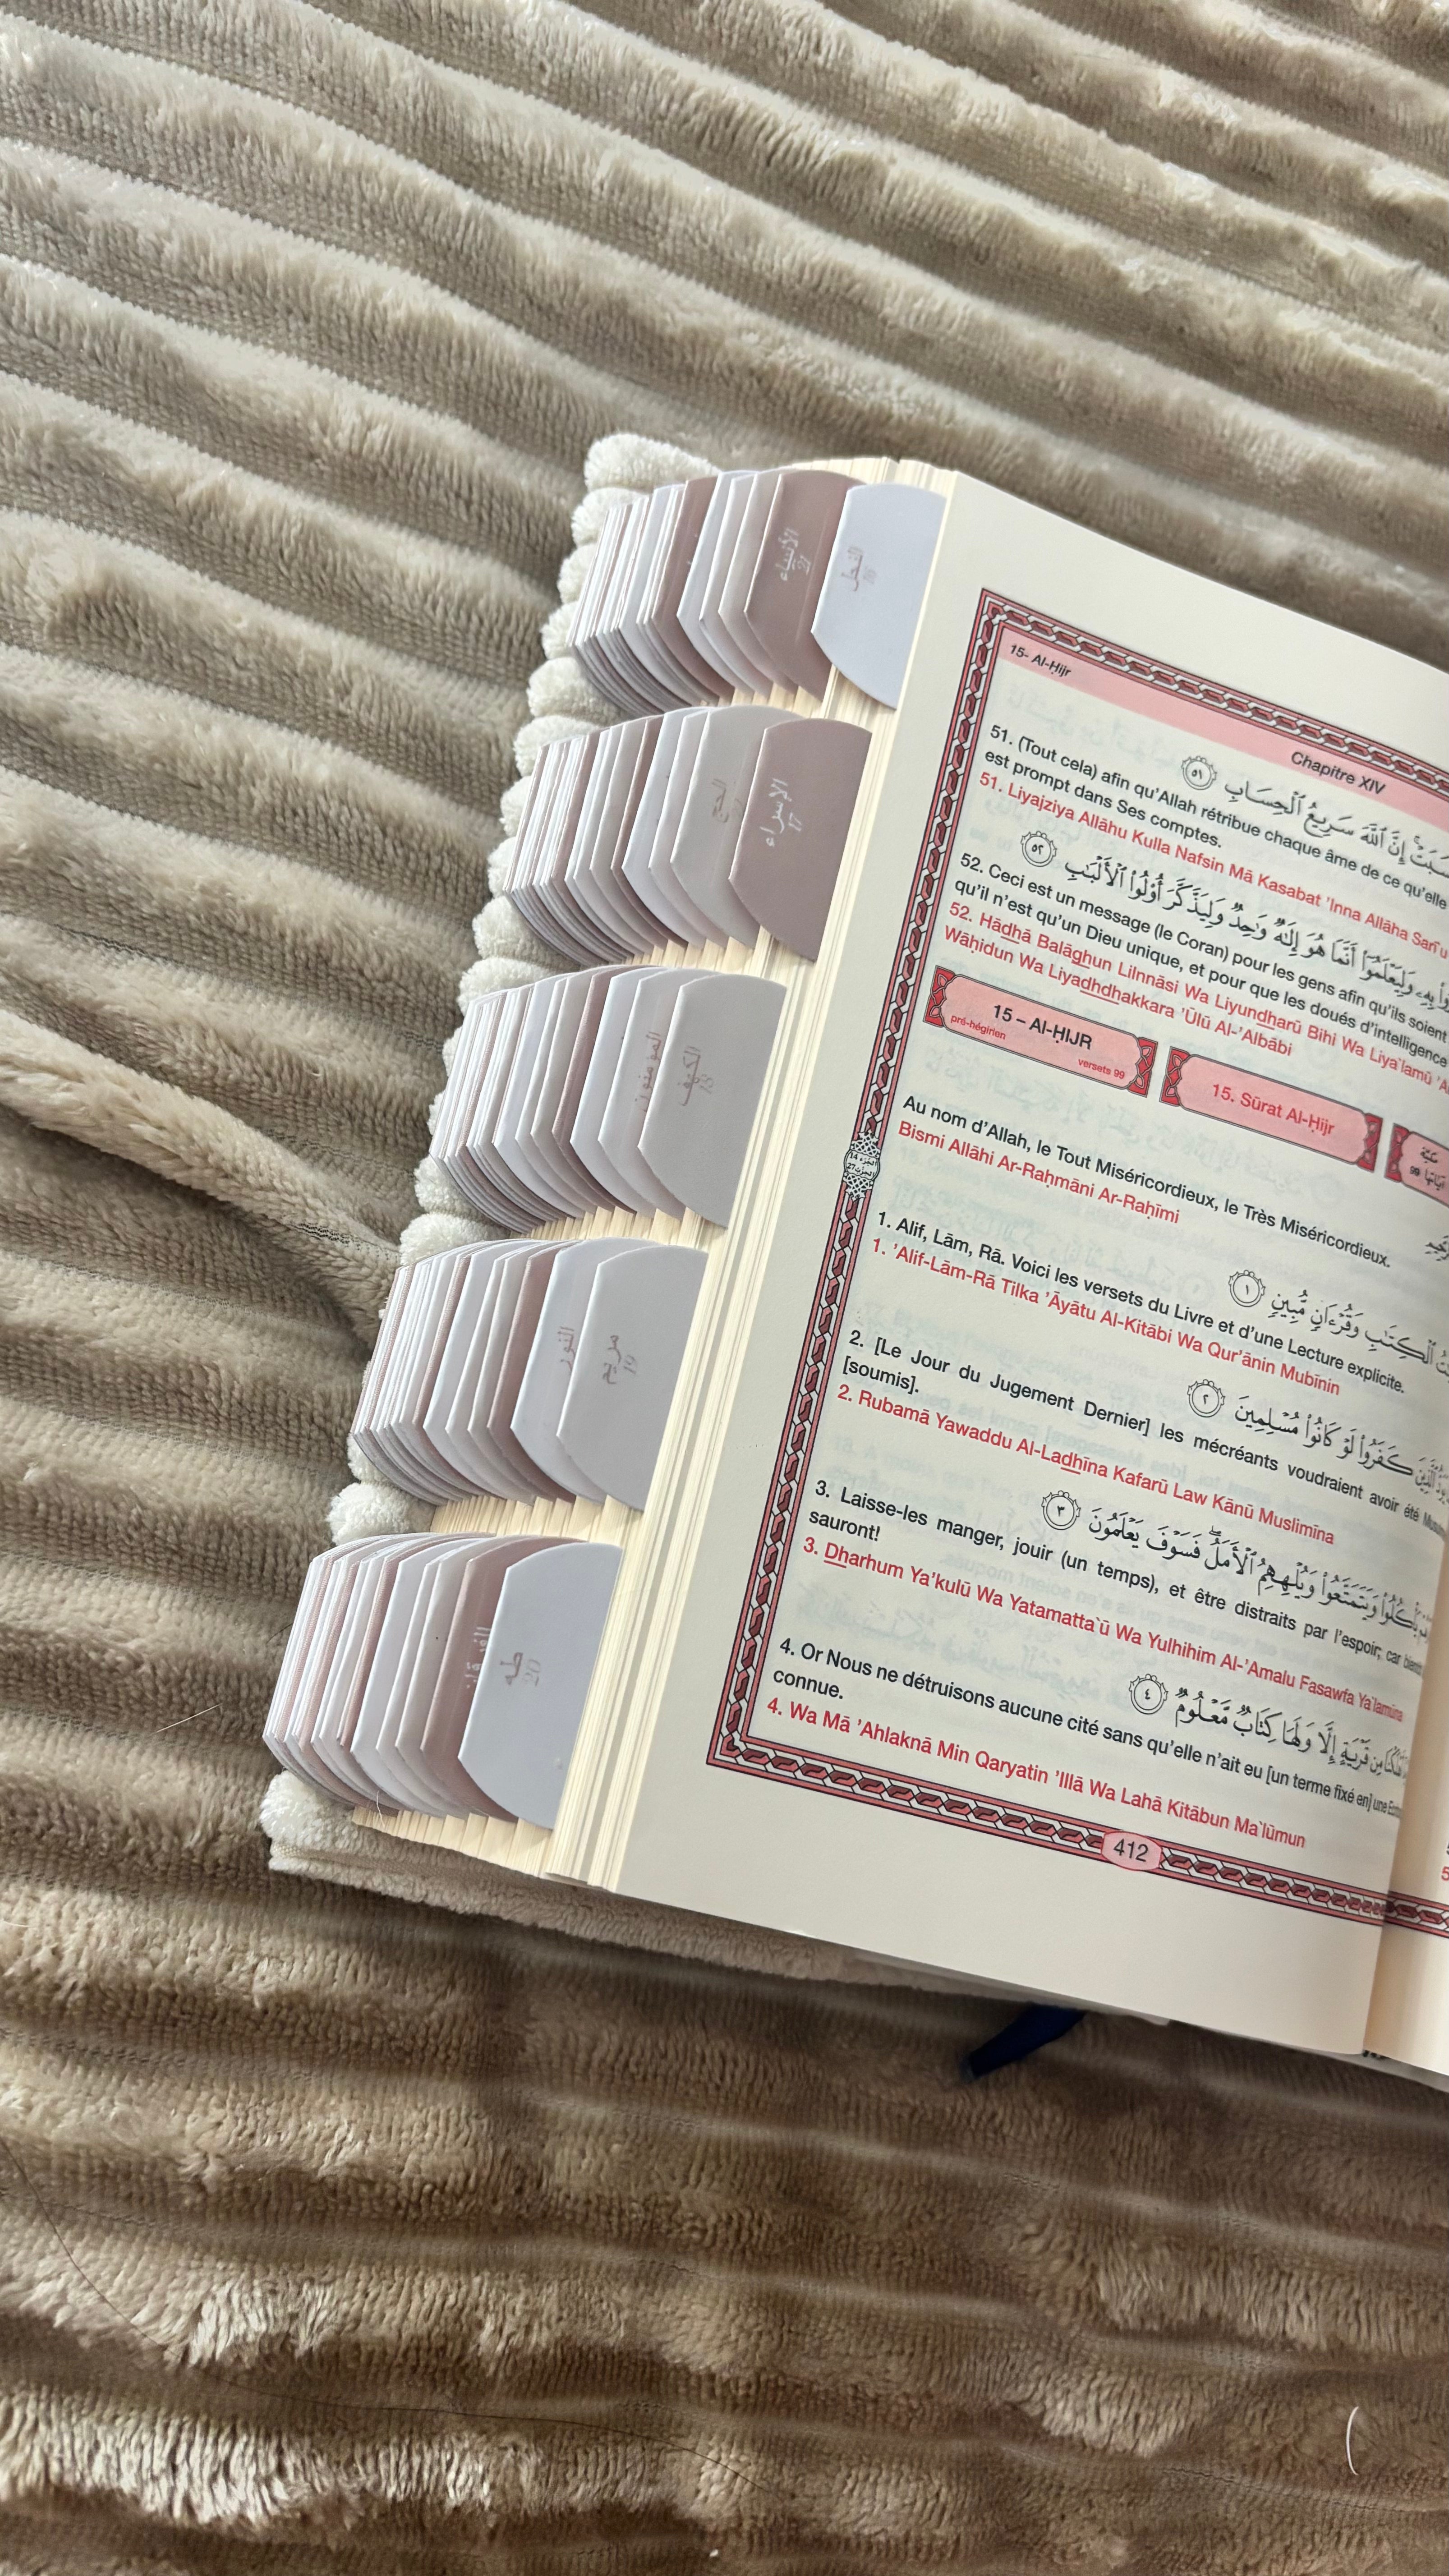 النحل
16
الأنبياء
21
الإسراء
17
الحج
الكهف
18
المؤمنون
مريم
19
النور
طه
20
الفرقان
15- Al-Ḥijr
Chapitre XIV
إِنَّ ٱللَّهَ سَرِيعُ ٱلْحِسَابِ ٥١
51. (Tout cela) afin qu'Allah rétribue chaque âme de ce qu'elle
est prompt dans Ses comptes.
51. Liyajziya Allāhu Kulla Nafsin Mā Kasabat 'Inna Allāha Sarī'u
وَلِيَعْلَمُوٓا۟ أَنَّمَا هُوَ إِلَٰهٌ وَٰحِدٌ وَلِيَذَّكَّرَ أُو۟لُوا۟ ٱلْأَلْبَٰبِ ٥٢
52. Ceci est un message (le Coran) pour les gens afin qu'ils soient
qu'il n'est qu'un Dieu unique, et pour que les doués d'intelligence
52. Hādhā Balāghun Lilnnāsi Wa Liyundharū Bihi Wa Liya`lamū
Wāḥidun Wa Liyadhdhakkara 'Ūlū Al-'Albābi
15 – Al-ḤIJR
pré-hégirien
versets 99
15. Sūrat Al-Ḥijr
Au nom d'Allah, le Tout Miséricordieux, le Très Miséricordieux.
Bismi Allāhi Ar-Raḥmāni Ar-Raḥīmi
ٱلْكِتَٰبِ وَقُرْءَانٍ مُّبِينٍ ١
1. Alif, Lām, Rā. Voici les versets du Livre et d'une Lecture explicite.
1. 'Alif-Lām-Rā Tilka 'Āyātu Al-Kitābi Wa Qur'ānin Mubīnin
كَفَرُوا۟ لَوْ كَانُوا۟ مُسْلِمِينَ ٢
2. [Le Jour du Jugement Dernier] les mécréants voudraient avoir été
[soumis].
2. Rubamā Yawaddu Al-Ladhīna Kafarū Law Kānū Muslimīna
وَيَتَمَتَّعُوا۟ وَيُلْهِهِمُ ٱلْأَمَلُ ۖ فَسَوْفَ يَعْلَمُونَ ٣
3. Laisse-les manger, jouir (un temps), et être distraits par l'espoir; car bientôt
sauront!
3. Dharhum Ya'kulū Wa Yatamatta`ū Wa Yulhihim Al-'Amalu Fasawfa Ya`lamūna
مِن قَرْيَةٍ إِلَّا وَلَهَا كِتَابٌ مَّعْلُومٌ ٤
4. Or Nous ne détruisons aucune cité sans qu'elle n'ait eu [un terme fixé en] une
connue.
4. Wa Mā 'Ahlaknā Min Qaryatin 'Illā Wa Lahā Kitābun Ma`lūmun
412